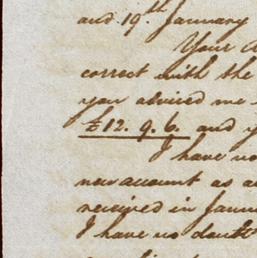 and 19th January
Your a
correct with the
you advised me
£12. 9. 6. and y
I have no
new account as a
received in Janu
I have no doubt